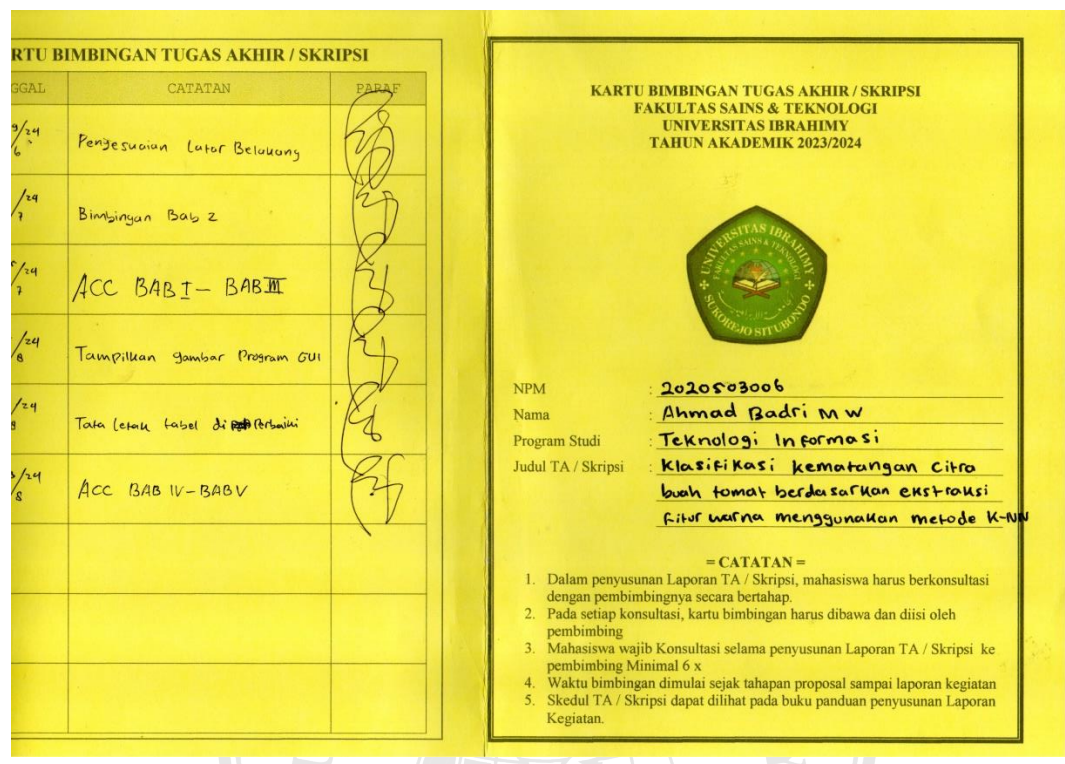 RTU BIMBINGAN TUGAS AKHIR / SKRIPSI
GGAL CATATAN PARAF
9/24 6 Penyesuaian Latar Belakang
/24 7 Bimbingan Bab 2
/24 7 ACC BAB I - BAB III
/24 8 Tampilkan gambar Program GUI
/24 8 Tata letak tabel di Perbaiki
/24 8 ACC BAB IV - BAB V
KARTU BIMBINGAN TUGAS AKHIR / SKRIPSI
FAKULTAS SAINS & TEKNOLOGI
UNIVERSITAS IBRAHIMY
TAHUN AKADEMIK 2023/2024
UNIVERSITAS IBRAHIMY
FAKULTAS SAINS & TEKNOLOGI
SUKOREJO SITUBONDO
NPM : 2020503006
Nama : Ahmad Badri M W
Program Studi : Teknologi Informasi
Judul TA / Skripsi : Klasifikasi kematangan citra
buah tomat berdasarkan ekstraksi
fitur warna menggunakan metode K-NN
= CATATAN =
1. Dalam penyusunan Laporan TA / Skripsi, mahasiswa harus berkonsultasi
dengan pembimbingnya secara bertahap.
2. Pada setiap konsultasi, kartu bimbingan harus dibawa dan diisi oleh
pembimbing
3. Mahasiswa wajib Konsultasi selama penyusunan Laporan TA / Skripsi ke
pembimbing Minimal 6 x
4. Waktu bimbingan dimulai sejak tahapan proposal sampai laporan kegiatan
5. Skedul TA / Skripsi dapat dilihat pada buku panduan penyusunan Laporan
Kegiatan.